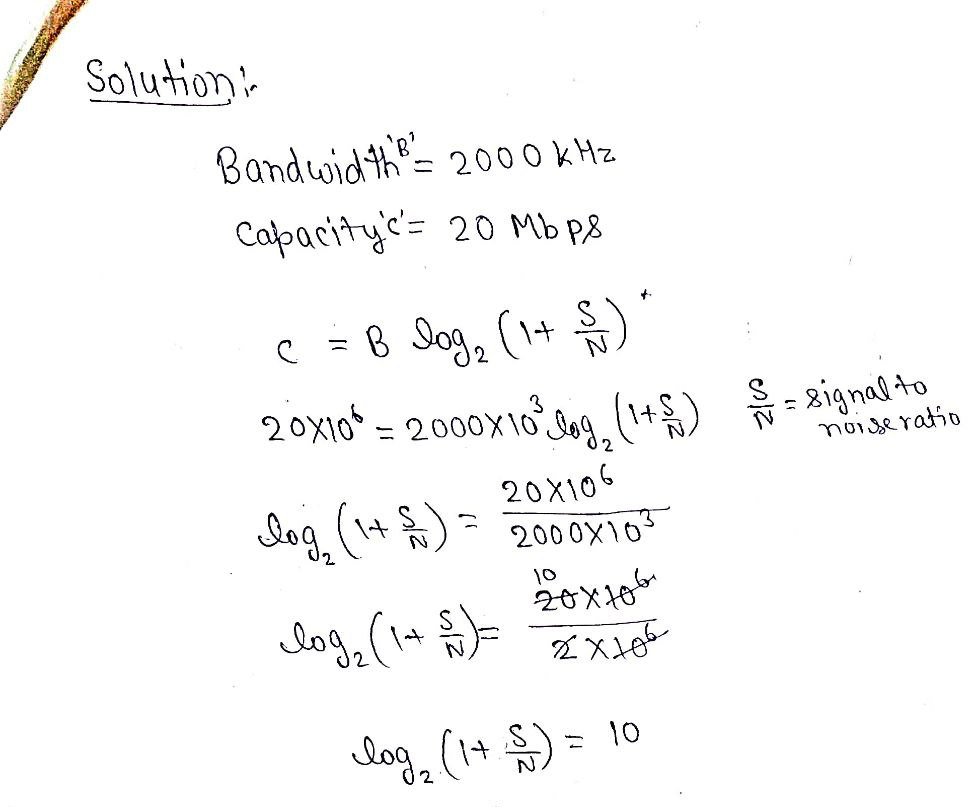 Solution:-
Bandwidth 'B' = 2000 kHz
Capacity 'C' = 20 Mbps
C = B log₂ (1 + S/N)
20×10⁶ = 2000×10³ log₂ (1+S/N) S/N = signal to noise ratio
log₂ (1+ S/N) = 20×10⁶ / 2000×10³
log₂ (1+ S/N) = 10 20×10⁶ / 2×10⁶
log₂ (1+ S/N) = 10